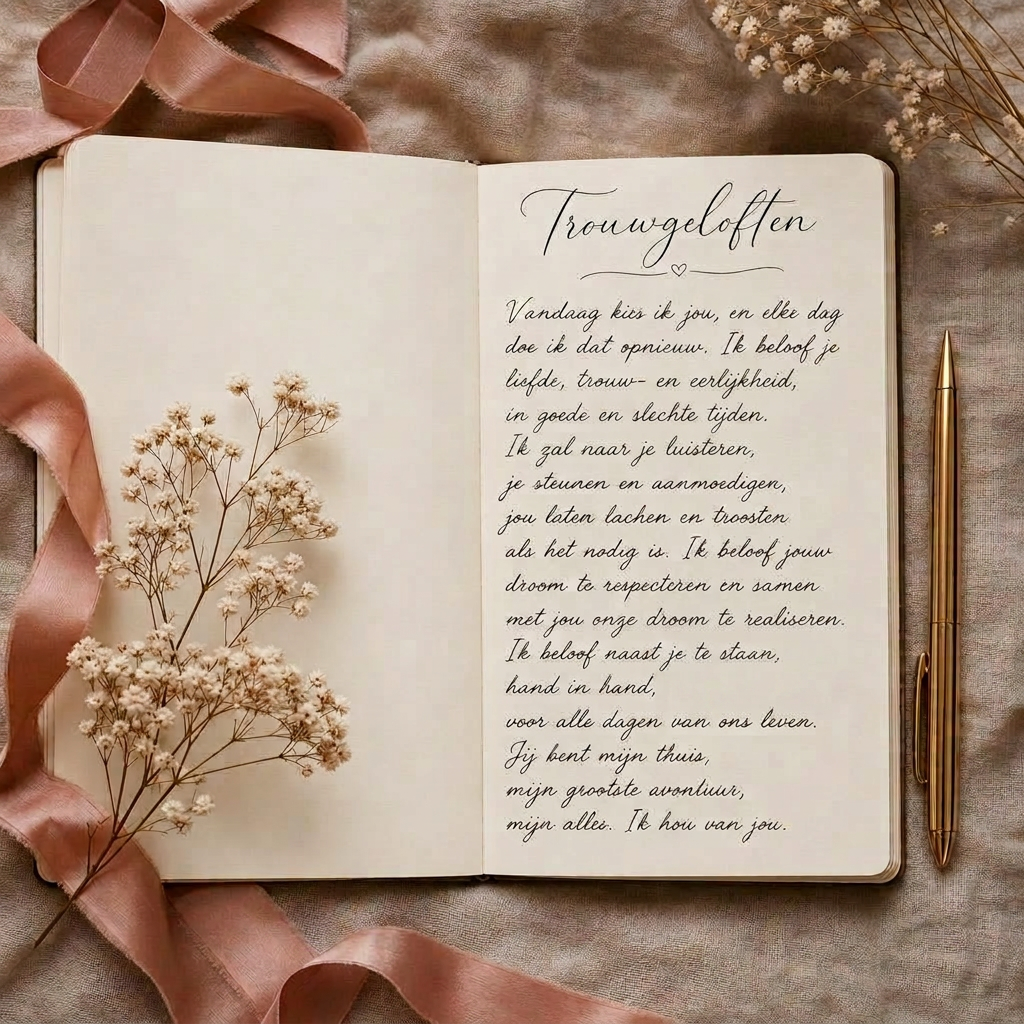 Trouwgeloften
Vandaag kies ik jou, en elke dag
doe ik dat opnieuw. Ik beloof je
liefde, trouw- en eerlijkheid,
in goede en slechte tijden.
Ik zal naar je luisteren,
je steunen en aanmoedigen,
jou laten lachen en troosten
als het nodig is. Ik beloof jouw
droom te respecteren en samen
met jou onze droom te realiseren.
Ik beloof naast je te staan,
hand in hand,
voor alle dagen van ons leven.
Jij bent mijn thuis,
mijn grootste avontuur,
mijn alles. Ik hou van jou.